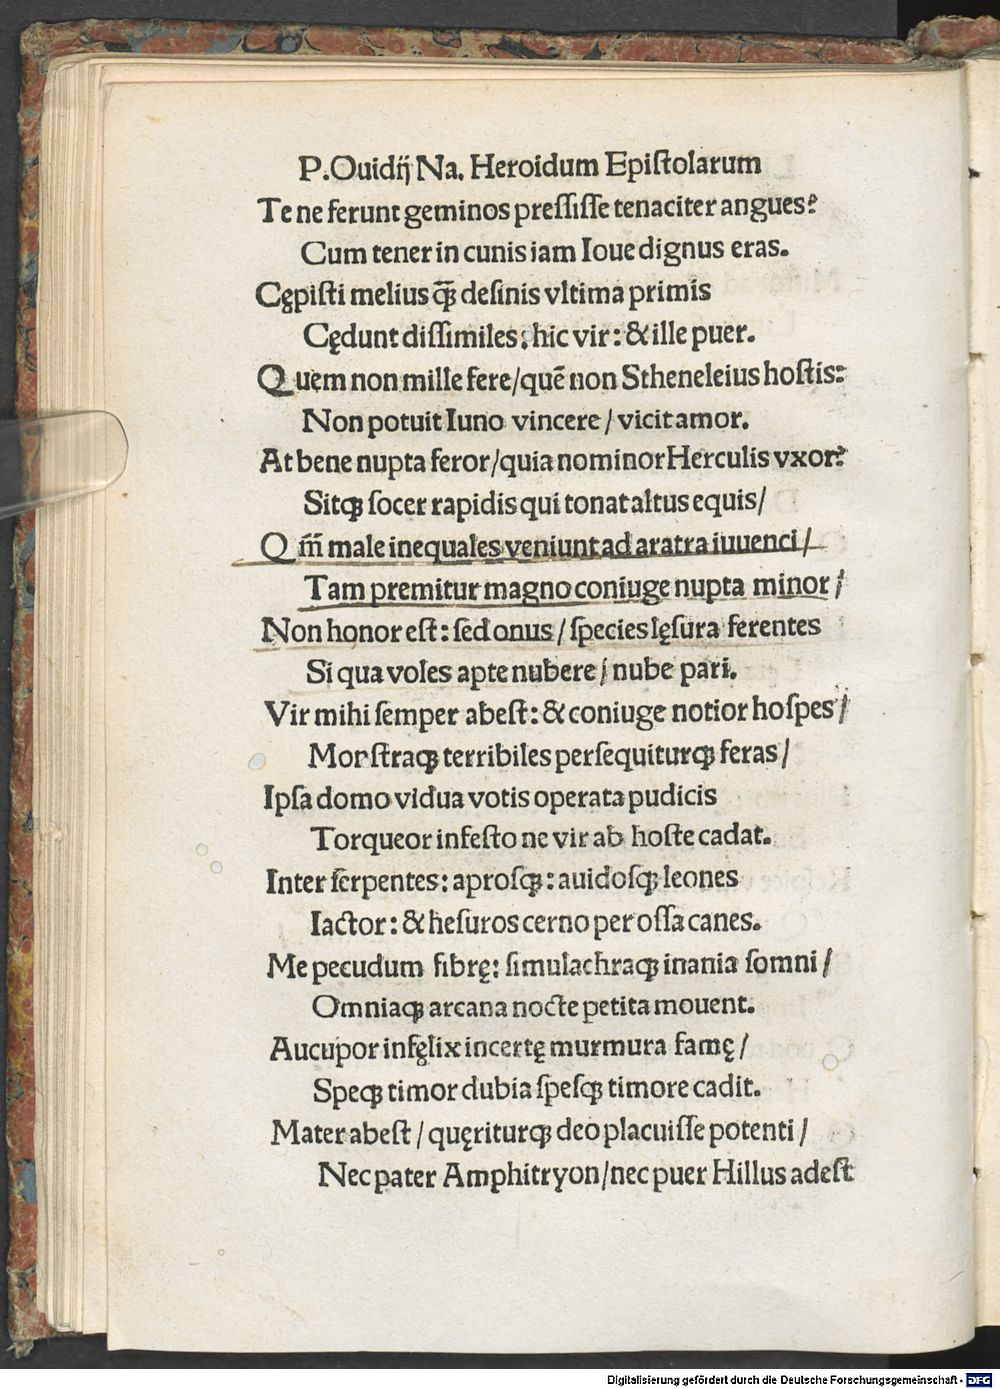 P. Ouidij Na. Heroidum Epiſtolarum
Te ne ferunt geminos preſſiſſe tenaciter angues?
Cum tener in cunis iam Ioue dignus eras.
Cępiſti melius ꝗ̃ꝫ deſinis vltima primis
Cędunt diſſimiles: hic vir: & ille puer.
Quem non mille fere/ quē non Stheneleius hoſtis:
Non potuit Iuno vincere / vicit amor.
At bene nupta feror/ quia nominor Herculis vxor?
Sitqꝫ ſocer rapidis qui tonat altus equis/
Q m̃ male inequales veniunt ad aratra iuuenci/
Tam premitur magno coniuge nupta minor/
Non honor eſt: ſed onus / ſpecies lęſura ferentes
Si qua voles apte nubere/ nube pari.
Vir mihi ſemper abeſt: & coniuge notior hoſpes/
Monſtraqꝫ terribiles perſequiturqꝫ feras/
Ipſa domo vidua votis operata pudicis
Torqueor infeſto ne vir ab hoſte cadat.
Inter ſerpentes: aproſqꝫ: auidoſqꝫ leones
Iactor: & heſuros cerno per oſſa canes.
Me pecudum fibrę: ſimulachraqꝫ inania ſomni/
Omniaqꝫ arcana nocte petita mouent.
Aucupor infęlix incertę murmura famę/
Speqꝫ timor dubia ſpeſqꝫ timore cadit.
Mater abeſt/ quęriturqꝫ deo placuiſſe potenti/
Nec pater Amphitryon/ nec puer Hillus adeſt
Digitalisierung gefördert durch die Deutsche Forschungsgemeinschaft - DFG